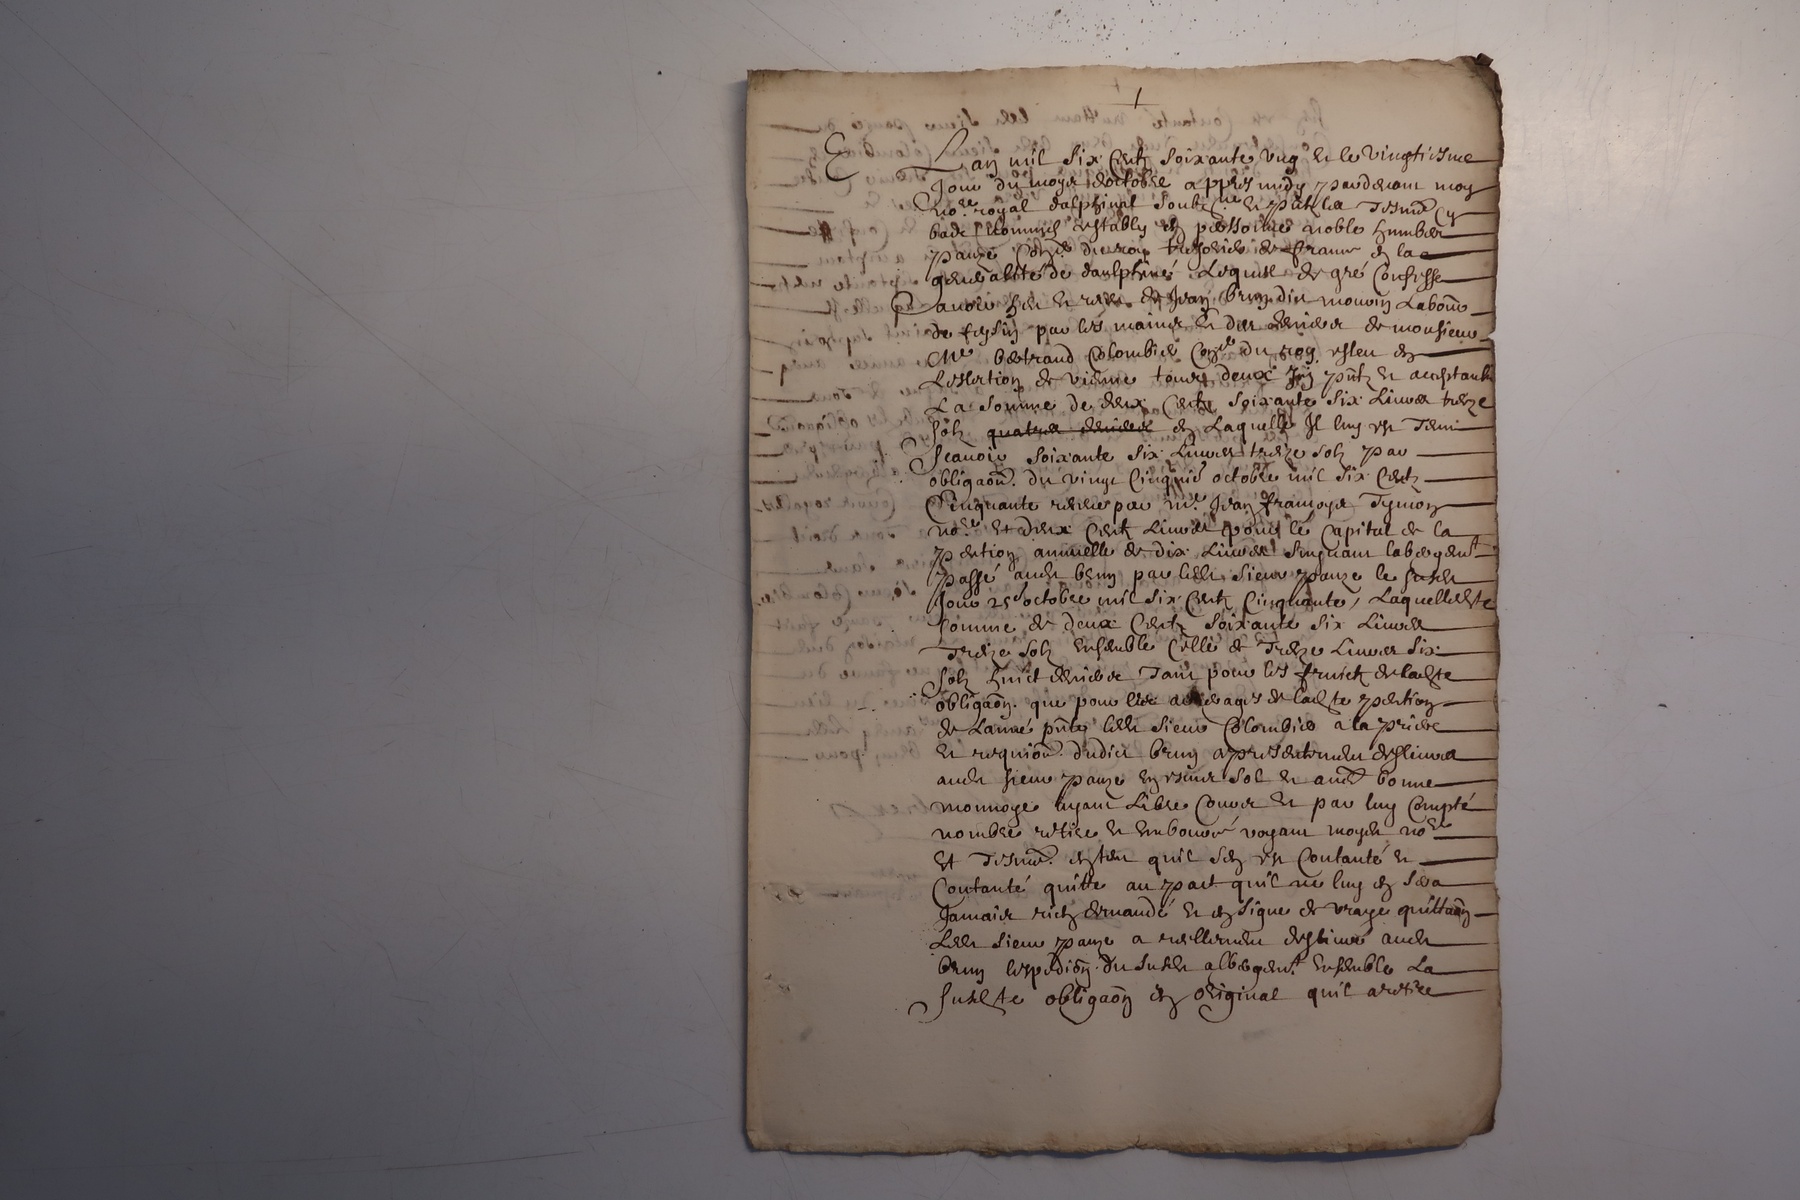 L'an mil six centz soixante ung et le vingtiesme
jour du moys d'octobre appres midy pardevant moy
no.re royal dalphinal soubz.né et p̃ntz les tesm. cy
bas nommés estably en personne noble humber
panze con.er du roy tresorier de france en la
generalité de daulphiné Lequel de gré confesse
avoir heu et receu de Jean brun dit mouvin Labour.
de feysin par les mains et des deniers de monsieur
Me bertrand Colombier con.er du roy esleu en
Leslection de vienne tours deux Icy p̃ntz et acceptantz
La somme de deux centz soixante six Livres treze
solz quatre deniers en Laquelle Il luy est Tenu
scavoir soixante six Livres treize solz par
obligaõn. du vingt cinquie octobre mil six centz
Cinquante receue par m.e Jean françoys Tymon
no.re Et deux centz Livres pour le capital de la
pention annuelle de dix Livres suyvant labergem.t
passé audt brun par ledt sieur panze le susdt
jour 25 octobre mil six centz cinquante, Laquelle dte
somme de deux centz soixante six Livres
Treize solz Ensemble Celle de Treize Livres six
solz huict deniers Tant pour les fruictz de ladte
obligaõn. que pour les arreages de ladte pention
de Lanné p̃nte ledt sieur Colombier a la priere
et requiõn. dudict brun a presentement deslivrés
audt sieur panze en escus sol et aut.e bonne
monnoye ayant Libre Cours et par luy Compté
nombré retiré et emboursé voyant moydt no.re
Et Tesm. en tant quil s'en est Contanté et
Contanté quitte au pact quil ne luy en sera
Jamais rien demandé et en signe de vraye quittaõn
Ledt sieur panze a reellement deslivré audt
brun lespediõn du susdt albergem.t Ensemble La
susdte obligaõn en original quil a retiré